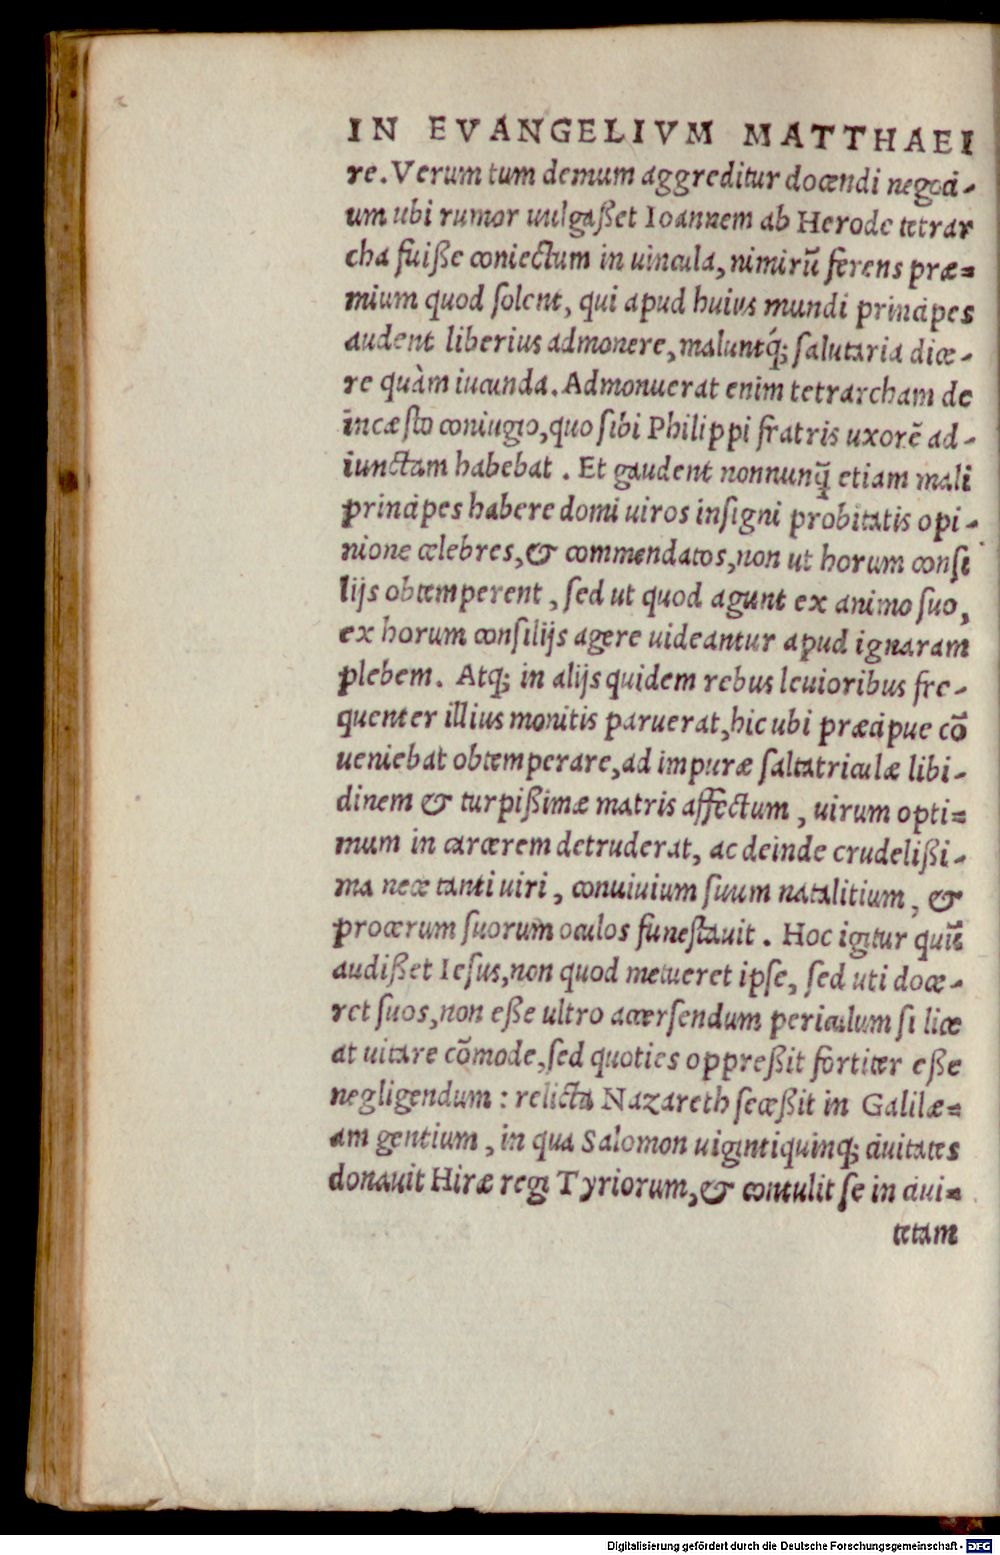 IN EVANGELIVM MATTHAEI
re. Verum tum demum aggreditur docendi negoci-
um ubi rumor uulgaßet Ioannem ab Herode tetrar
cha fuiße coniectum in uincula, nimirũ ferens præ=
mium quod ſolent, qui apud huius mundi principes
audent liberius admonere, maluntq́; ſalutaria dice-
re quàm iucunda. Admonuerat enim tetrarcham de
incæſto coniugio, quo ſibi Philippi fratris uxorẽ ad-
iunctam habebat. Et gaudent nonnunq̃ etiam mali
principes habere domi uiros inſigni probitatis opi-
nione celebres, & commendatos, non ut horum conſi
lijs obtemperent, ſed ut quod agunt ex animo ſuo,
ex horum conſilijs agere uideantur apud ignaram
plebem. Atq; in alijs quidem rebus leuioribus fre-
quenter illius monitis paruerat, hic ubi præcipue cõ
ueniebat obtemperare, ad impuræ ſaltatriculæ libi-
dinem & turpißimæ matris affectum, uirum opti=
mum in carcerem detruderat, ac deinde crudelißi-
ma nece tanti uiri, conuiuium ſuum natalitium, &
procerum ſuorum oculos funeſtauit. Hoc igitur quũ
audißet Ieſus, non quod metueret ipſe, ſed uti doce-
ret ſuos, non eße ultro accerſendum periculum ſi lice
at uitare cõmode, ſed quoties oppreßit fortiter eße
negligendum: relicta Nazareth ſeceßit in Galilæ=
am gentium, in qua Salomon uigintiquinq; ciuitates
donauit Hiræ regi Tyriorum, & contulit ſe in ciui=
tetam
Digitalisierung gefördert durch die Deutsche Forschungsgemeinschaft - DFG